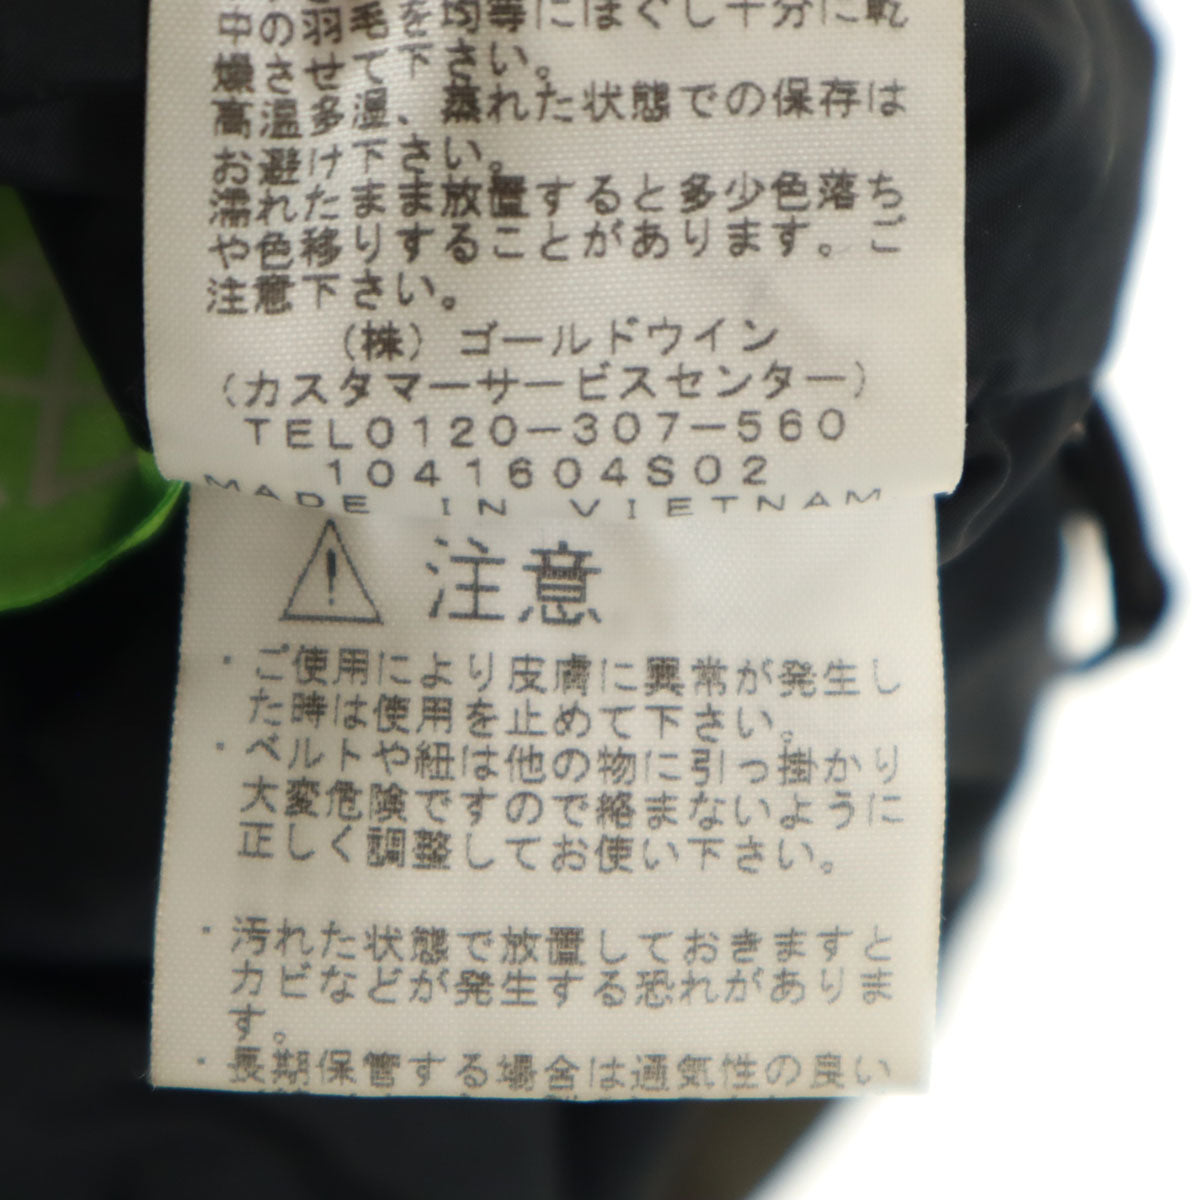 中の羽毛を均等にほぐし十分に乾
燥させて下さい。
高温多湿、蒸れた状態での保存は
お避け下さい。
濡れたまま放置すると多少色落ち
や色移りすることがあります。ご
注意下さい。
(株)ゴールドウイン
(カスタマーサービスセンター)
TEL0120-307-560
1041604S02
MADE IN VIETNAM
注意
・ご使用により皮膚に異常が発生し
た時は使用を止めて下さい。
・ベルトや紐は他の物に引っ掛かり
大変危険ですので絡まないように
正しく調整してお使い下さい。
・汚れた状態で放置しておきますと
カビなどが発生する恐れがありま
す。
・長期保管する場合は通気性の良い